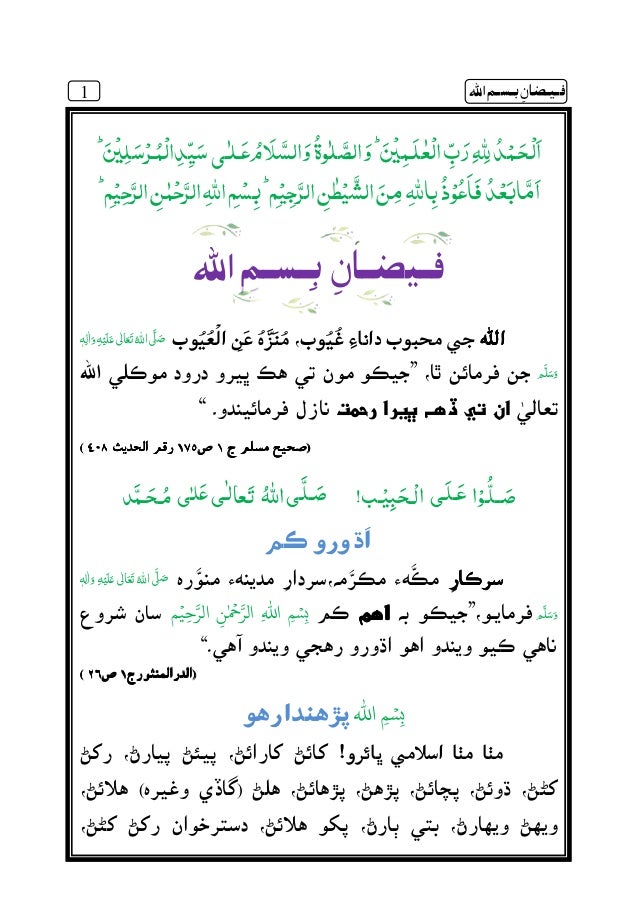 فيضانِ بسم الله
1
اَلْحَمْدُ لِلّٰهِ رَبِّ الْعٰلَمِيْنَ ؕ وَالصَّلٰوةُ وَالسَّلَامُ عَلٰى سَيِّدِ الْمُرْسَلِيْنَ ؕ
اَمَّا بَعْدُ فَاَعُوْذُ بِاللّٰهِ مِنَ الشَّيْطٰنِ الرَّجِيْمِ ؕ بِسْمِ اللهِ الرَّحْمٰنِ الرَّحِيْمِ ؕ
فيضانِ بِسمِ الله
الله جي محبوب داناءِ غُيُوب، مُنَزَّهٌ عَنِ الْعُيُوب صَلَّى اللهُ تَعَالٰى عَلَيْهِ وَاٰلِهٖ
وَسَلَّمَ جن فرمائن ٿا، ”جيڪو مون تي هڪ ڀيرو درود موڪلي الله
تعاليٰ ان تي ڏهه ڀيرا رحمت نازل فرمائيندو. “
(صحيح مسلم ج ١ ص١٧٥ رقم الحديث ٤٠٨ )
صَلُّوْا عَلَى الْحَبِيْب! صَلَّى اللهُ تَعَالٰى عَلٰى مُحَمَّد
اَڌورو ڪم
سرڪارِ مڪَّهء مڪرَّمہ،سردارِ مدينهء منوَّره صَلَّى اللهُ تَعَالٰى عَلَيْهِ وَاٰلِهٖ
وَسَلَّمَ فرمايو،”جيڪو به اهم ڪم بِسْمِ اللهِ الرَّحْمٰنِ الرَّحِيْمِ سان شروع
ناهي ڪيو ويندو اهو اڌورو رهجي ويندو آهي.“
(الدرالمنثورج١ ص٢٦ )
بِسْمِ الله پڙهندارهو
مٺا مٺا اسلامي ڀائرو! کائڻ کارائڻ، پيئڻ پيارڻ، رکڻ
کڻڻ، ڌوئڻ، پچائڻ، پڙهڻ، پڙهائڻ، هلڻ (گاڏي وغيره) هلائڻ،
ويهڻ ويهارڻ، بتي ٻارڻ، پکو هلائڻ، دسترخوان رکڻ کڻڻ،